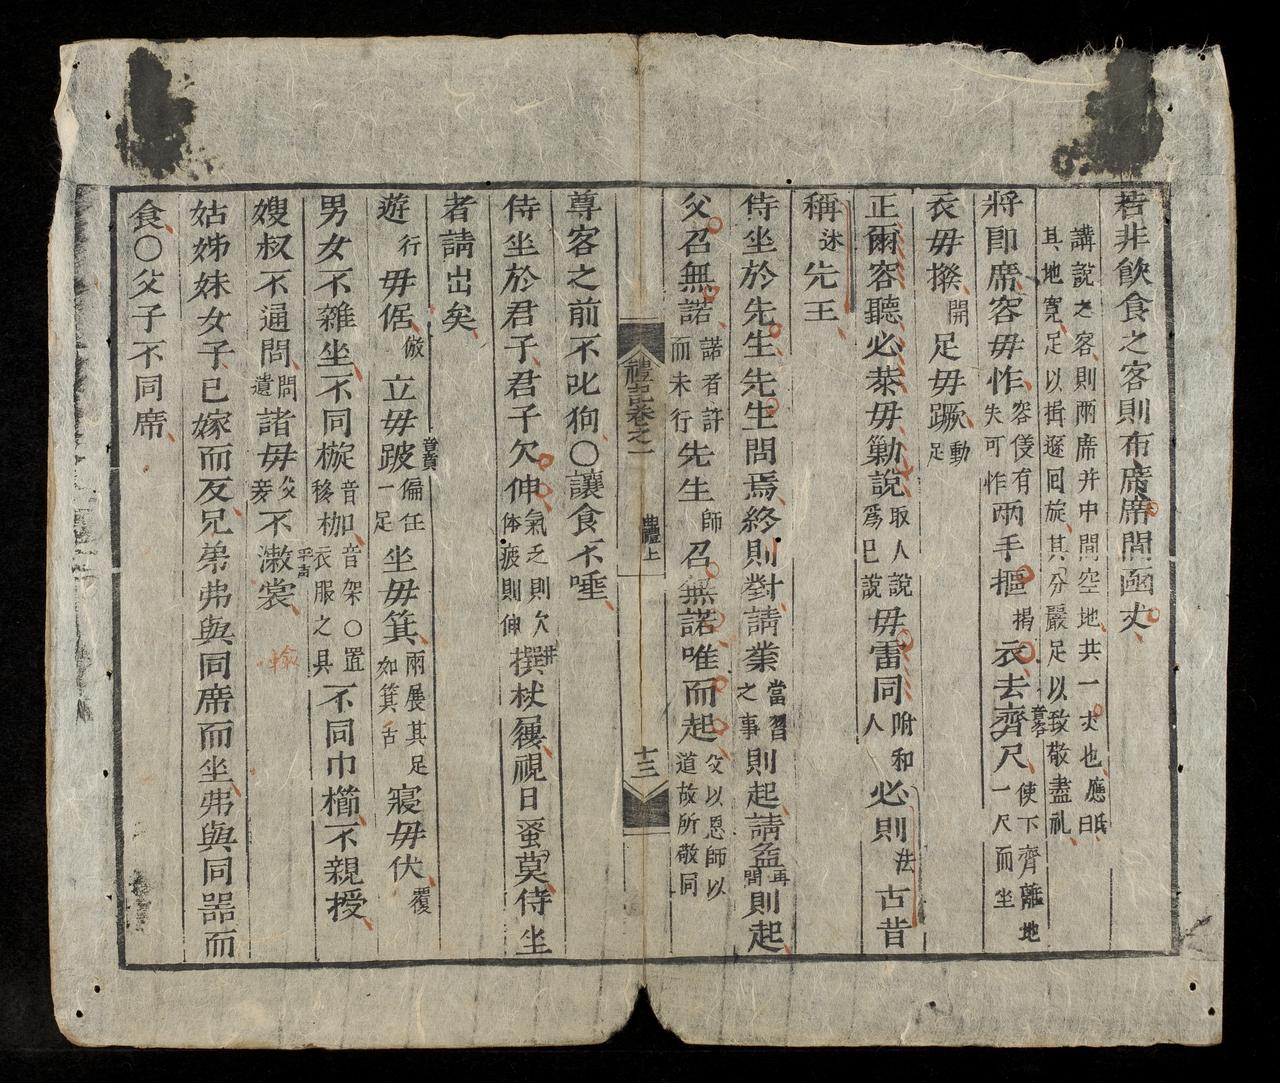 若非飲食之客則布席席間函丈
講說之客則兩席并中間空地共一丈也應氏曰
其地寬足以揖遜回旋其分嚴足以致敬盡礼
將即席容毋怍容僅有失可怍兩手摳揭衣去齊音咨尺使下齊離地一尺而坐
衣毋撥開足毋蹶動足
正爾容聽必恭毋勦說取人說爲己說毋雷同附和人必則法古昔
稱述先王
侍坐於先生先生問焉終則對請業當習之事則起請益再問則起
父召無諾諾者許而未行先生師召無諾唯而起父以恩師以道故所敬同
禮記卷之一 曲禮上 十三
尊客之前不叱狗〇讓食不唾
侍坐於君子君子欠伸氣乏則欠体疲則伸撰杖屨視日蚤莫侍坐
者請出矣
遊行毋倨倣立毋跛音賁偏任一足坐毋箕兩展其足如箕舌寢毋伏覆
男女不雜坐不同椸音移枷音架〇置衣服之具不同巾櫛不親授
嫂叔不通問問遺諸母父妾不漱平声裳
姑姊妹女子已嫁而反兄弟弗與同席而坐弗與同器而
食〇父子不同席